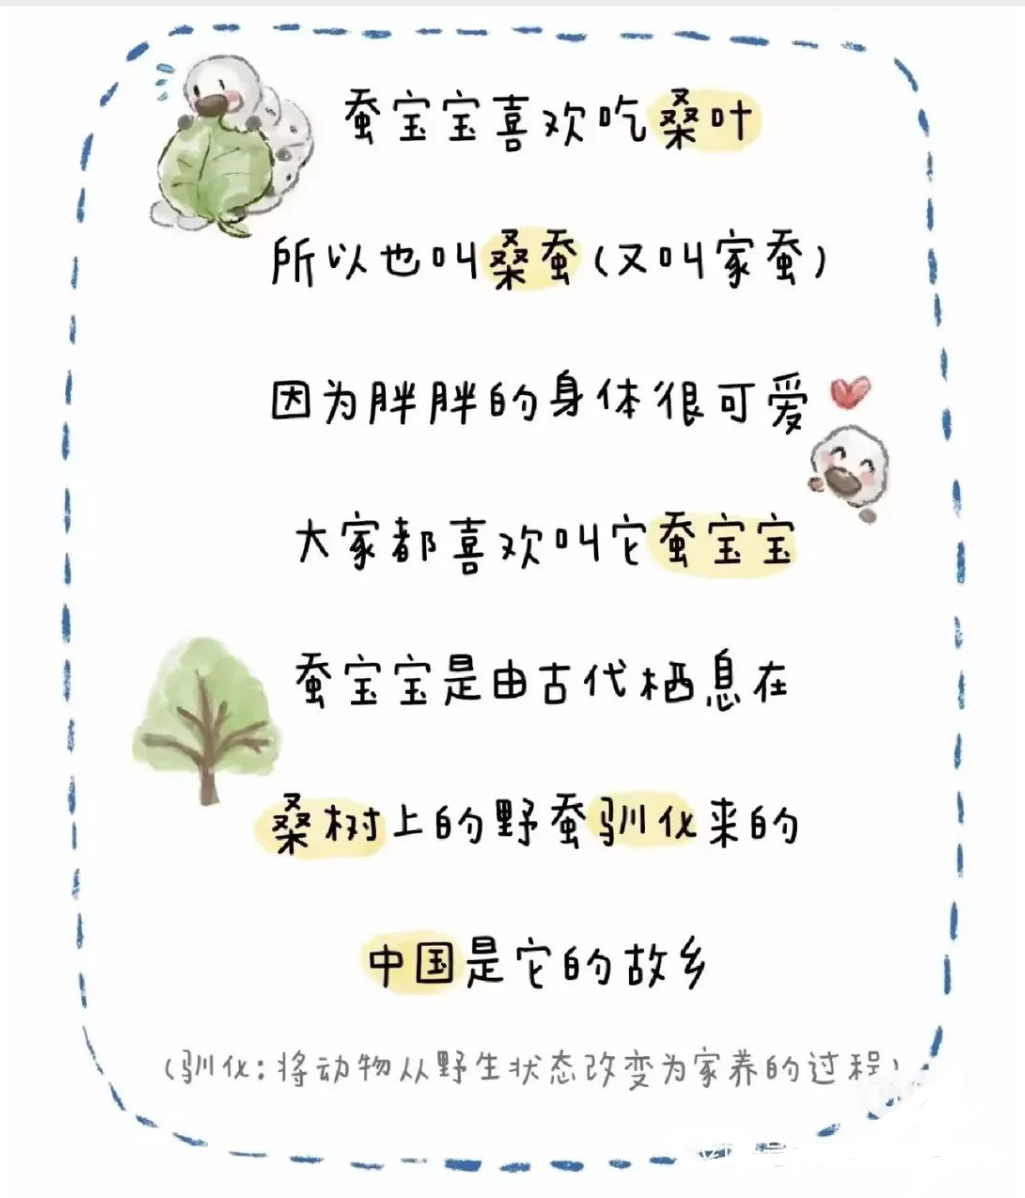 蚕宝宝喜欢吃桑叶
所以也叫桑蚕(又叫家蚕)
因为胖胖的身体很可爱
大家都喜欢叫它蚕宝宝
蚕宝宝是由古代栖息在
桑树上的野蚕驯化来的
中国是它的故乡
(驯化:将动物从野生状态改变为家养的过程)